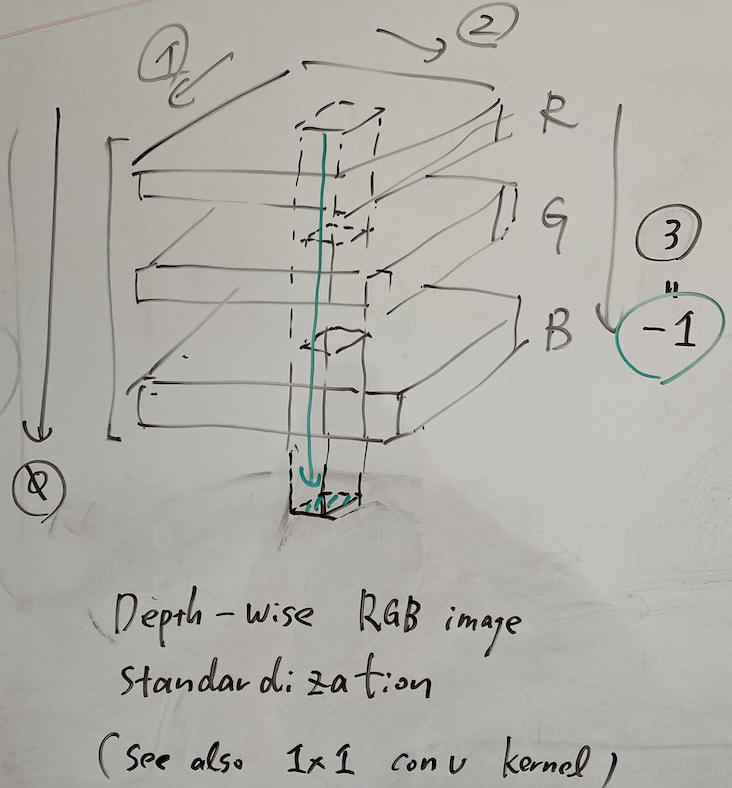 1
2
R
G
3
"
B
-1
0
Depth-wise RGB image
standardization
(see also 1x1 conv kernel)